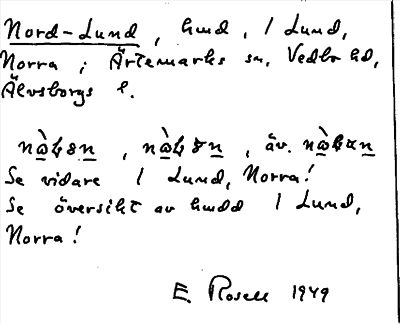 Nord-Lund, hmd, / Lund,
Norra; Ärtemarks sn, Vedbo hd,
Älvsborgs l.
, äv.
Se vidare / Lund, Norra!
Se översikt av hmdd / Lund,
Norra!
E. Rosell 1949